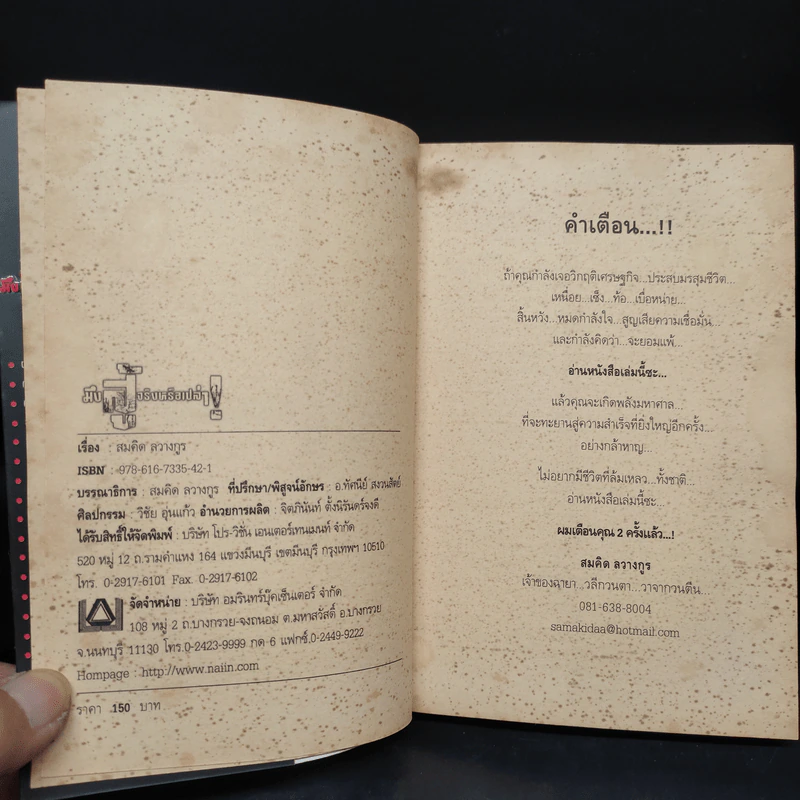 มึง
มึงสู้จริงหรือเปล่า!
เรื่อง : สมคิด ลวางกูร
ISBN : 978-616-7335-42-1
บรรณาธิการ : สมคิด ลวางกูร ที่ปรึกษา/พิสูจน์อักษร : อ.ทัศนีย์ สงวนสัตย์
ศิลปกรรม : วิชัย อุ่นแก้ว อำนวยการผลิต : จิตภินันท์ ตั้งนิรันดร์จงดี
ได้รับสิทธิ์ให้จัดพิมพ์ : บริษัท โปร-วิชั่น เอนเตอร์เทนเมนท์ จำกัด
520 หมู่ 12 ถ.รามคำแหง 164 แขวงมีนบุรี เขตมีนบุรี กรุงเทพฯ 10510
โทร. 0-2917-6101 Fax. 0-2917-6102
จัดจำหน่าย : บริษัท อมรินทร์บุ๊คเซ็นเตอร์ จำกัด
108 หมู่ 2 ถ.บางกรวย-จงถนอม ต.มหาสวัสดิ์ อ.บางกรวย
จ.นนทบุรี 11130 โทร.0-2423-9999 กด 6 แฟกซ์.0-2449-9222
Hompage : http://www.naiin.com
ราคา 150 บาท
คำเตือน...!!
ถ้าคุณกำลังเจอวิกฤติเศรษฐกิจ...ประสบมรสุมชีวิต...
เหนื่อย...เซ็ง...ท้อ...เบื่อหน่าย...
สิ้นหวัง...หมดกำลังใจ...สูญเสียความเชื่อมั่น...
และกำลังคิดว่า...จะยอมแพ้...
อ่านหนังสือเล่มนี้ซะ...
แล้วคุณจะเกิดพลังมหาศาล...
ที่จะทะยานสู่ความสำเร็จที่ยิ่งใหญ่อีกครั้ง...
อย่างกล้าหาญ...
ไม่อยากมีชีวิตที่ล้มเหลว...ทั้งชาติ...
อ่านหนังสือเล่มนี้ซะ...
ผมเตือนคุณ 2 ครั้งแล้ว...!
สมคิด ลวางกูร
เจ้าของฉายา...วลีกวนตา...วาจากวนตีน...
081-638-8004
samakidaa@hotmail.com